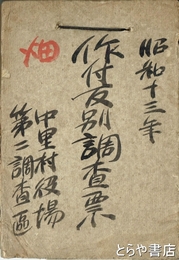 昭和十三年
畑
作付反別調査票
中里村役場
第二調査區
とらや書店